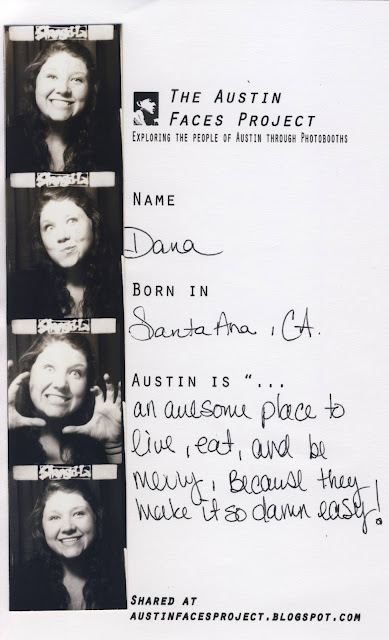 The Austin
Faces Project
Exploring the people of Austin through Photobooths
Name
Dana
Born in
Santa Ana, CA.
Austin is "...
an awesome place to
live, eat, and be
merry, Because they
make it so damn easy!
Shared at
austinfacesproject.blogspot.com